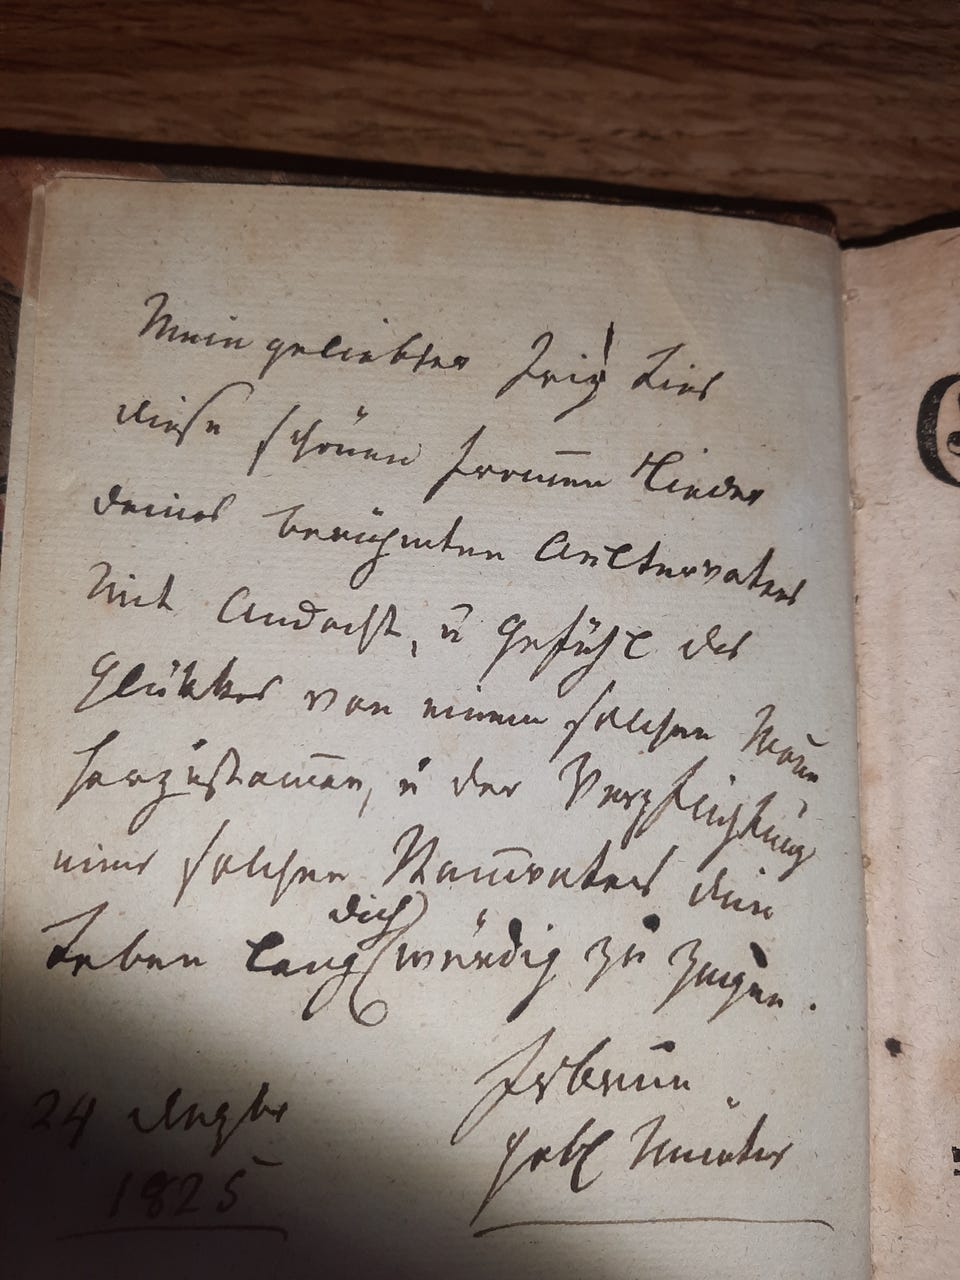 Mein geliebter Friz! Lies
diese schönen from̄en Lieder
deines berühmten Aeltervaters
Mit Andacht, ū Gefühl des
Glükkes von einem solchen Man̄e
herzustam̄en, ū der Verpflichtung
eines solchen Stam̄vaters dein
Leben lang dich würdig zu zeigen.
FrBrun
geb Münter
24 Dezbr
1825